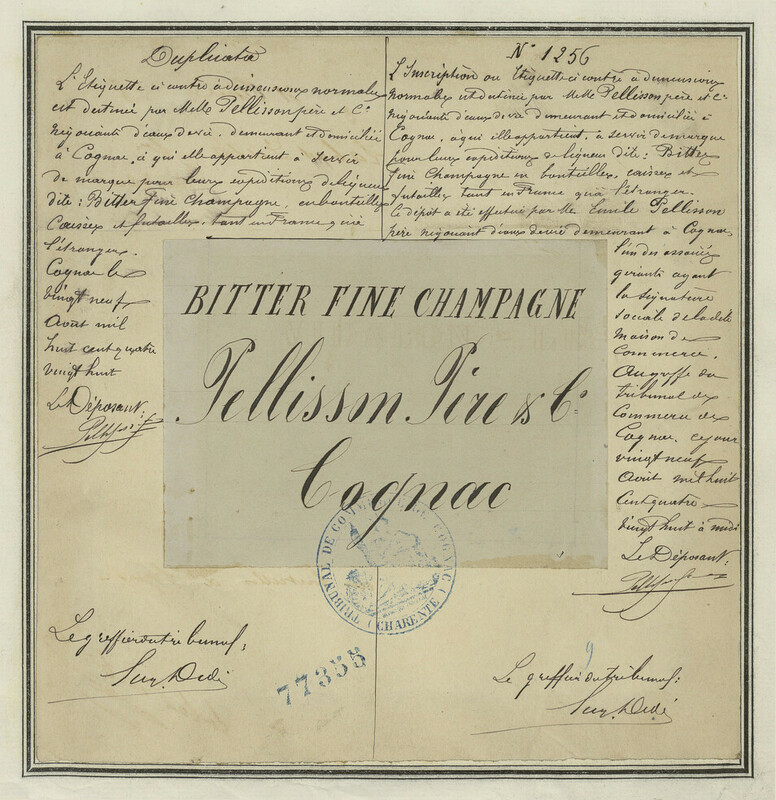 Duplicata
L'Etiquette ci contre à dimensions normales
est destinée par MM. Pellisson père et Cie
négociants d'eaux de vie, demeurant et domiciliés
à Cognac, à qui elle appartient à servir
de marque pour leurs expéditions de liqueur
dite: Bitter Fine Champagne, en bouteilles
Caisses et futailles, tant en France qu'à
l'étranger.
Cognac le
vingt neuf
Août mil
huit cent quatre
vingt huit
Le Déposant:
Le greffier du tribunal:
N° 1256
L'Inscription ou Etiquette ci contre à dimensions
normales est destinée par MM. Pellisson père et Cie
négociants d'eaux de vie demeurant et domiciliés à
Cognac, à qui elle appartient, à servir de marque
pour leurs expéditions de liqueur dite: Bitter
fine Champagne en bouteilles, caisses et
futailles tant en France qu'à l'étranger.
Le dépôt a été effectué par Mr Emile Pellisson
père négociant d'eaux de vie demeurant à Cognac
l'un des associés
gérants ayant
la signature
sociale de la dite
maison de
Commerce.
Au greffe du
tribunal de
Commerce de
Cognac, ce jour
vingt neuf
Août mil huit
Cent quatre
vingt huit à midi
Le Déposant:
Le greffier du tribunal:
BITTER FINE CHAMPAGNE
Pellisson Père & Co
Cognac
TRIBUNAL DE COMMERCE DE COGNAC
(CHARENTE)
77355
9